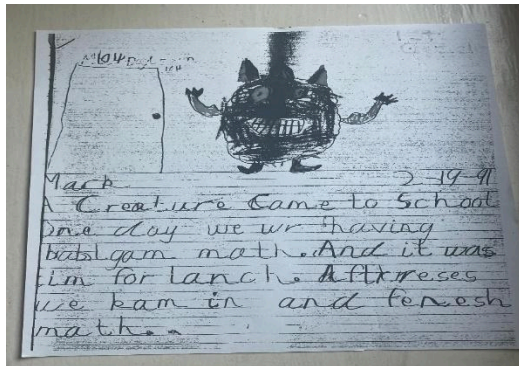 Mark 2-19-91
A Creature Came to School
One day we wr having
bablgam math. And it was
tim for lanch. Aftr reses
we kam in and fenesh
math..